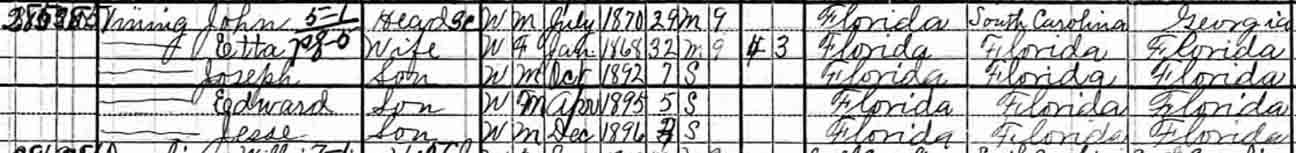 285 285 Vining John 5-1 Head W M July 1870 29 M 9 Florida South Carolina Georgia
Etta Wife W F Jan 1868 32 M 9 4 3 Florida Florida Florida
Joseph Son W M Oct 1892 7 S Florida Florida Florida
Edward Son W M Apr 1895 5 S Florida Florida Florida
Jesse Son W M Dec 1896 3 S Florida Florida Florida